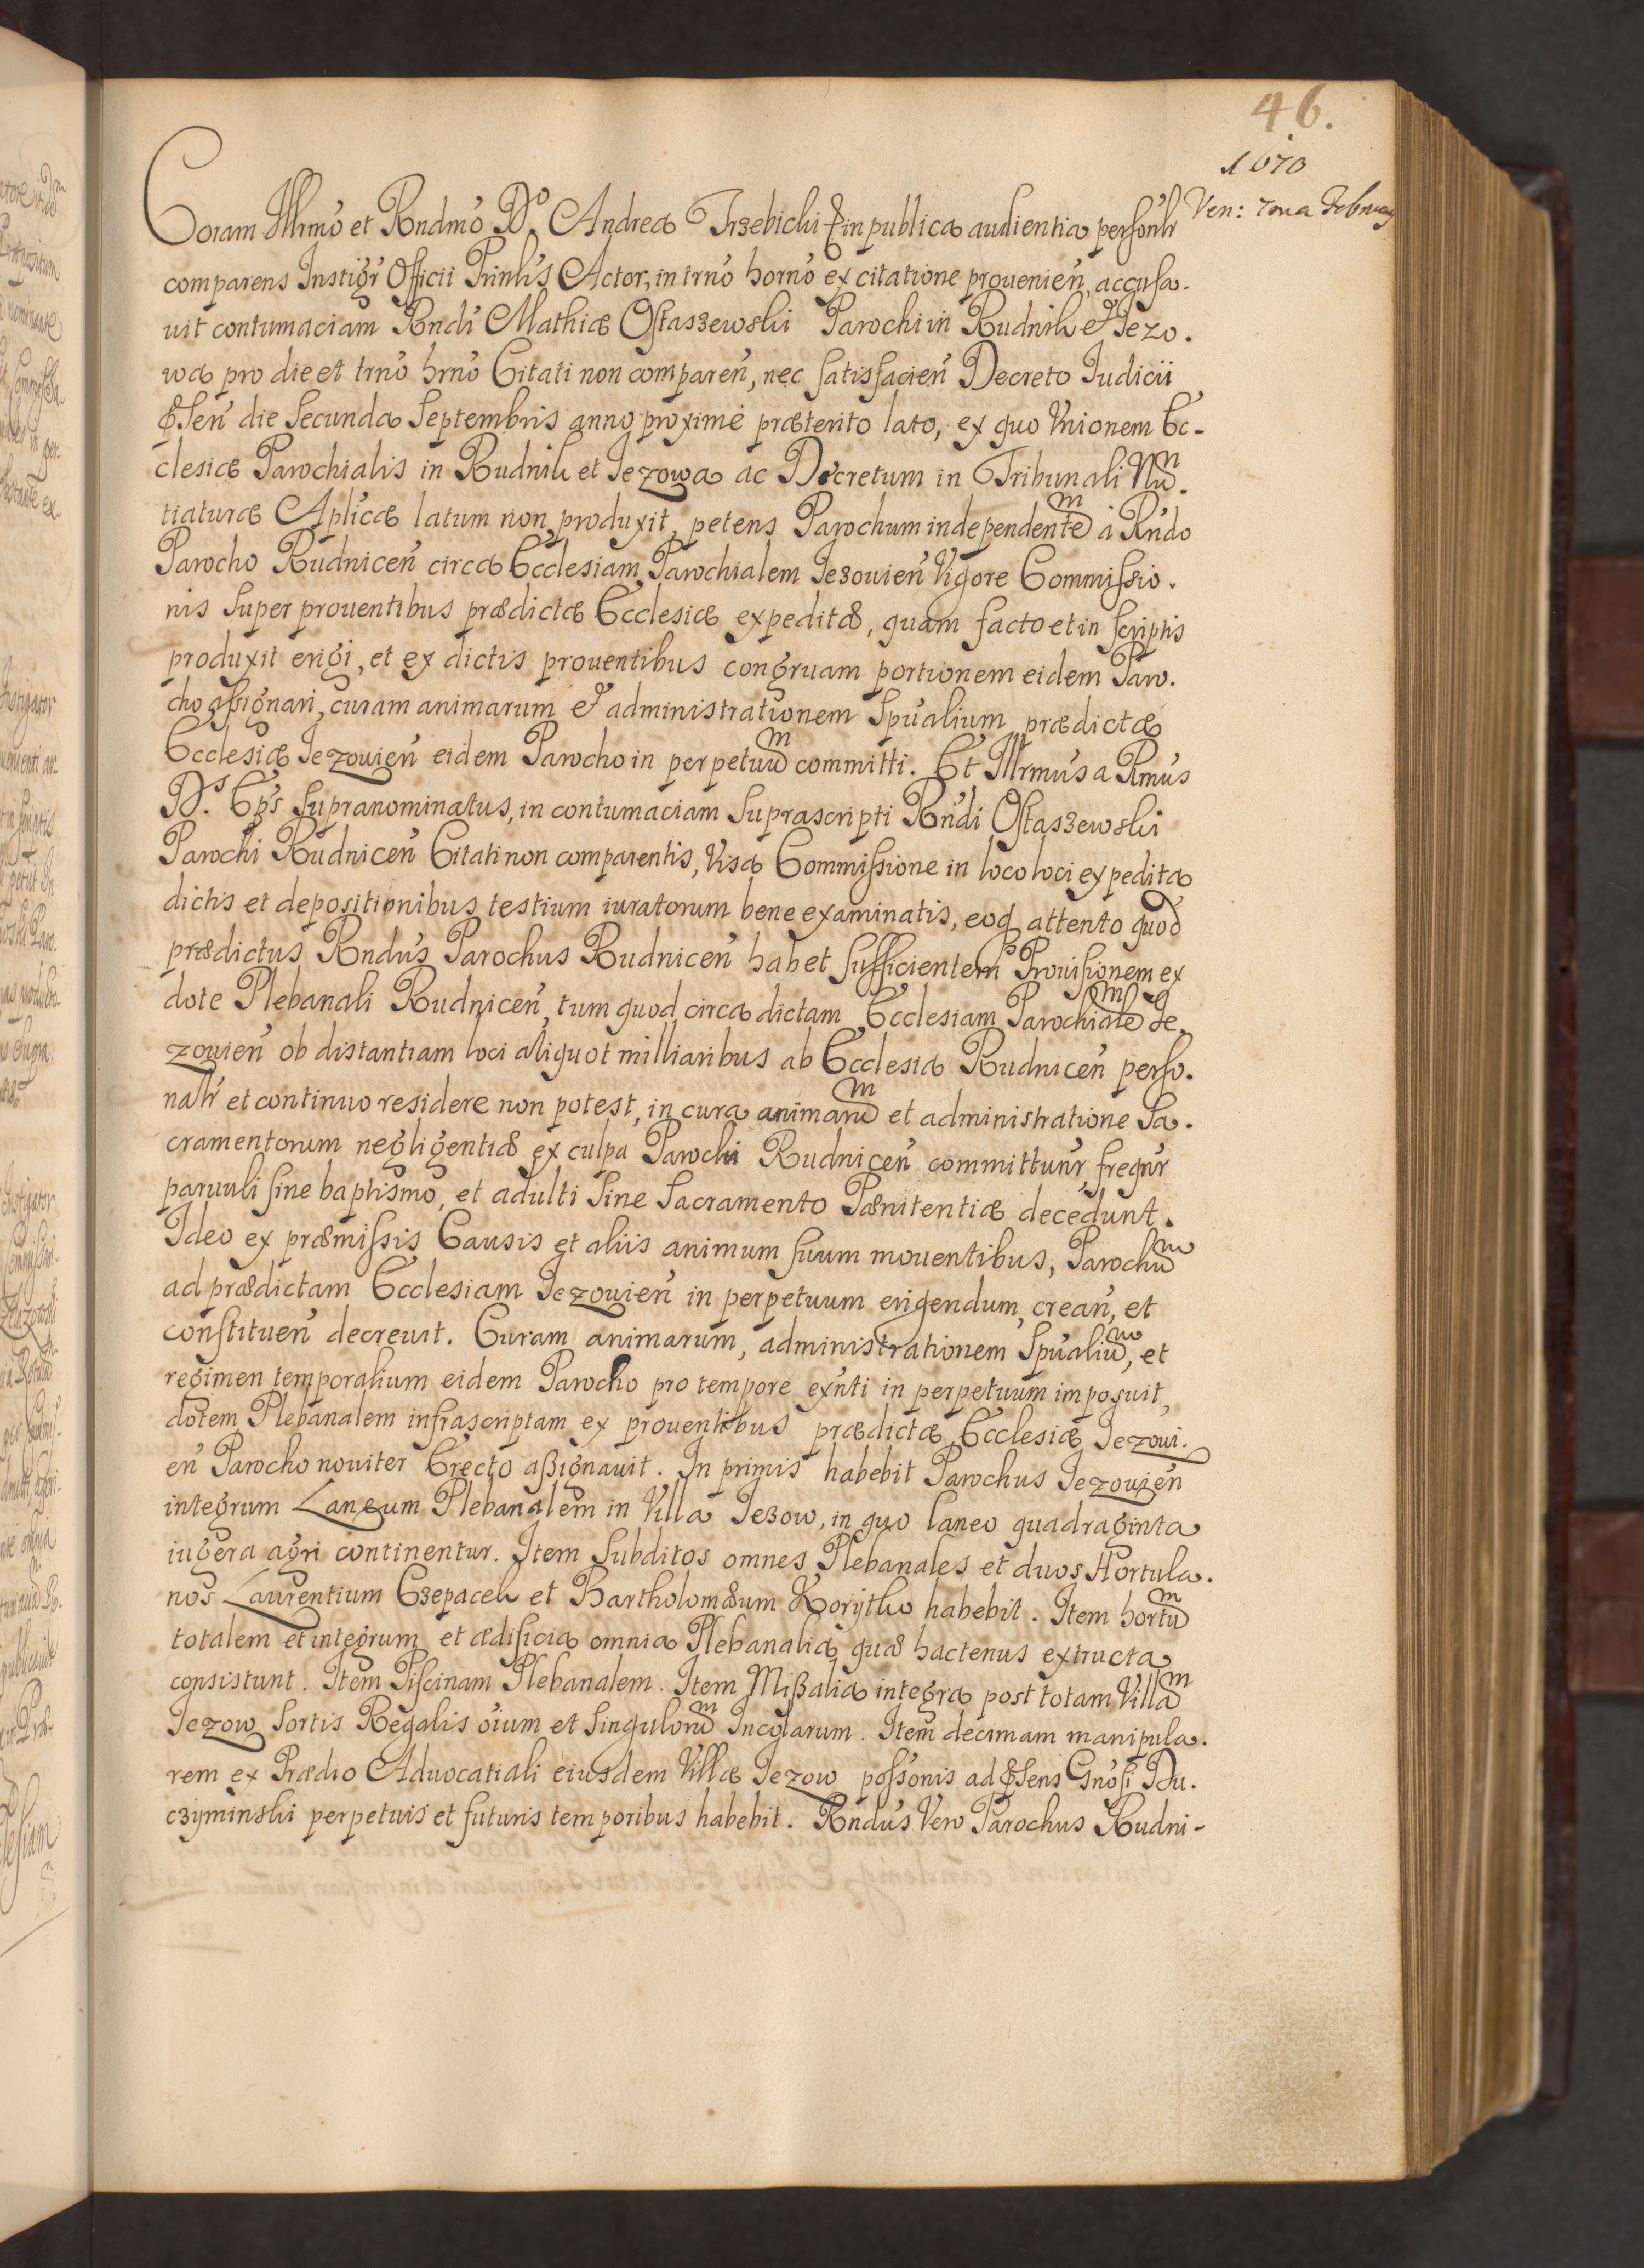 46.
1670
Ven: 7ma Februarij
Coram Illrmo et Rndmo Do. Andrea Trzebicki &c in publica audientia personlr
comparens Instigr Officii Prinlis Actor, in trno horno ex citatione prouenien, accusa.
uit contumaciam Rndi Mathiæ Ostaszewski Parochi in Rudnik & Jezo.
wa pro die et trno hrno Citati non comparen, nec satisfacien Decreto Iudicii
p̃sen die secunda Septembris anno proximè præterito lato, ex quo Vnionem Ec-
clesiæ Parochialis in Rudnik et Jezowa ac Decretum in Tribunali Num.
tiaturæ Aplicæ latum non produxit, petens Parochum independentem à Rndo
Parocho Rudnicen circa Ecclesiam Parochialem Jezouien Vigore Commissio.
nis super prouentibus prædictæ Ecclesiæ expeditæ, quam facto et in scriptis
produxit erigi, et ex dictis prouentibus congruam portionem eidem Paro.
cho assignari, curam animarum & administrationem Spualium prædictæ
Ecclesiæ Jezouien eidem Parocho in perpetuum committi. Et Illrmus a Rmus
Ds. Eps supranominatus, in contumaciam suprascripti Rndi Ostaszewski
Parochi Rudnicen Citati non comparentis, Visa Commissione in loco loci expedita
dictis et depositionibus testium iuratorum bene examinatis, eoq attento quod
prædictus Rndus Parochus Rudnicen habet sufficientem Prouisionem ex
dote Plebanali Rudnicen, tum quod circa dictam Ecclesiam Parochialem Je.
zouien ob distantiam loci aliquot milliaribus ab Ecclesia Rudnicen perso.
nalr et continuo residere non potest, in cura animarum et administratione Sa.
cramentorum negligentiæ ex culpa Parochi Rudnicen committunr, freqnr
paruuli sine baptismo, et adulti sine Sacramento Pænitentiæ decedunt.
Ideo ex præmissis Causis et aliis animum suum mouentibus, Parochum
ad prædictam Ecclesiam Jezouien in perpetuum erigendum, crean, et
constituen decreuit. Curam animarum, administrationem Spualium, et
regimen temporalium eidem Parocho pro tempore exnti in perpetuum imposuit,
dotem Plebanalem infrascriptam ex prouentibus prædictæ Ecclesiæ Jezoui.
en Parocho nouiter Erecto assignauit. In primis habebit Parochus Jezouien
integrum Laneum Plebanalem in Villa Jezow, in quo laneo quadraginta
iugera agri continentur. Item Subditos omnes Plebanales et duos Hortula.
nos Laurentium Czepacek et Bartholomæum Korytko habebit. Item hortum
totalem et integrum et ædificia omnia Plebanalia quæ hactenus extructa
consistunt. Item Piscinam Plebanalem. Item Missalia integra post totam Villam
Jezow Sortis Regalis oium et singulorum Incolarum. Item decimam manipula.
rem ex Prædio Aduocatiali eiusdem Villæ Jezow possonis ad p̃sens Gnosi Du.
czyminski perpetuis et futuris temporibus habebit. Rndus Vero Parochus Rudni-